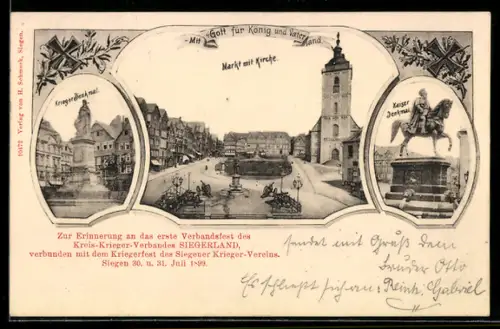 Mit Gott für König und Vaterland.
Kriegerdenkmal.
Markt mit Kirche.
Kaiser
Denkmal.
10172 Verlag von H. Schmeck, Siegen.
Zur Erinnerung an das erste Verbandsfest des
Kreis-Krieger-Verbandes SIEGERLAND,
verbunden mit dem Kriegerfest des Siegener Krieger-Vereins.
Siegen 30. u. 31. Juli 1899.
sendet mit Gruß Dein
Bruder Otto
Es schließt sich an: Reinh. Gabriel